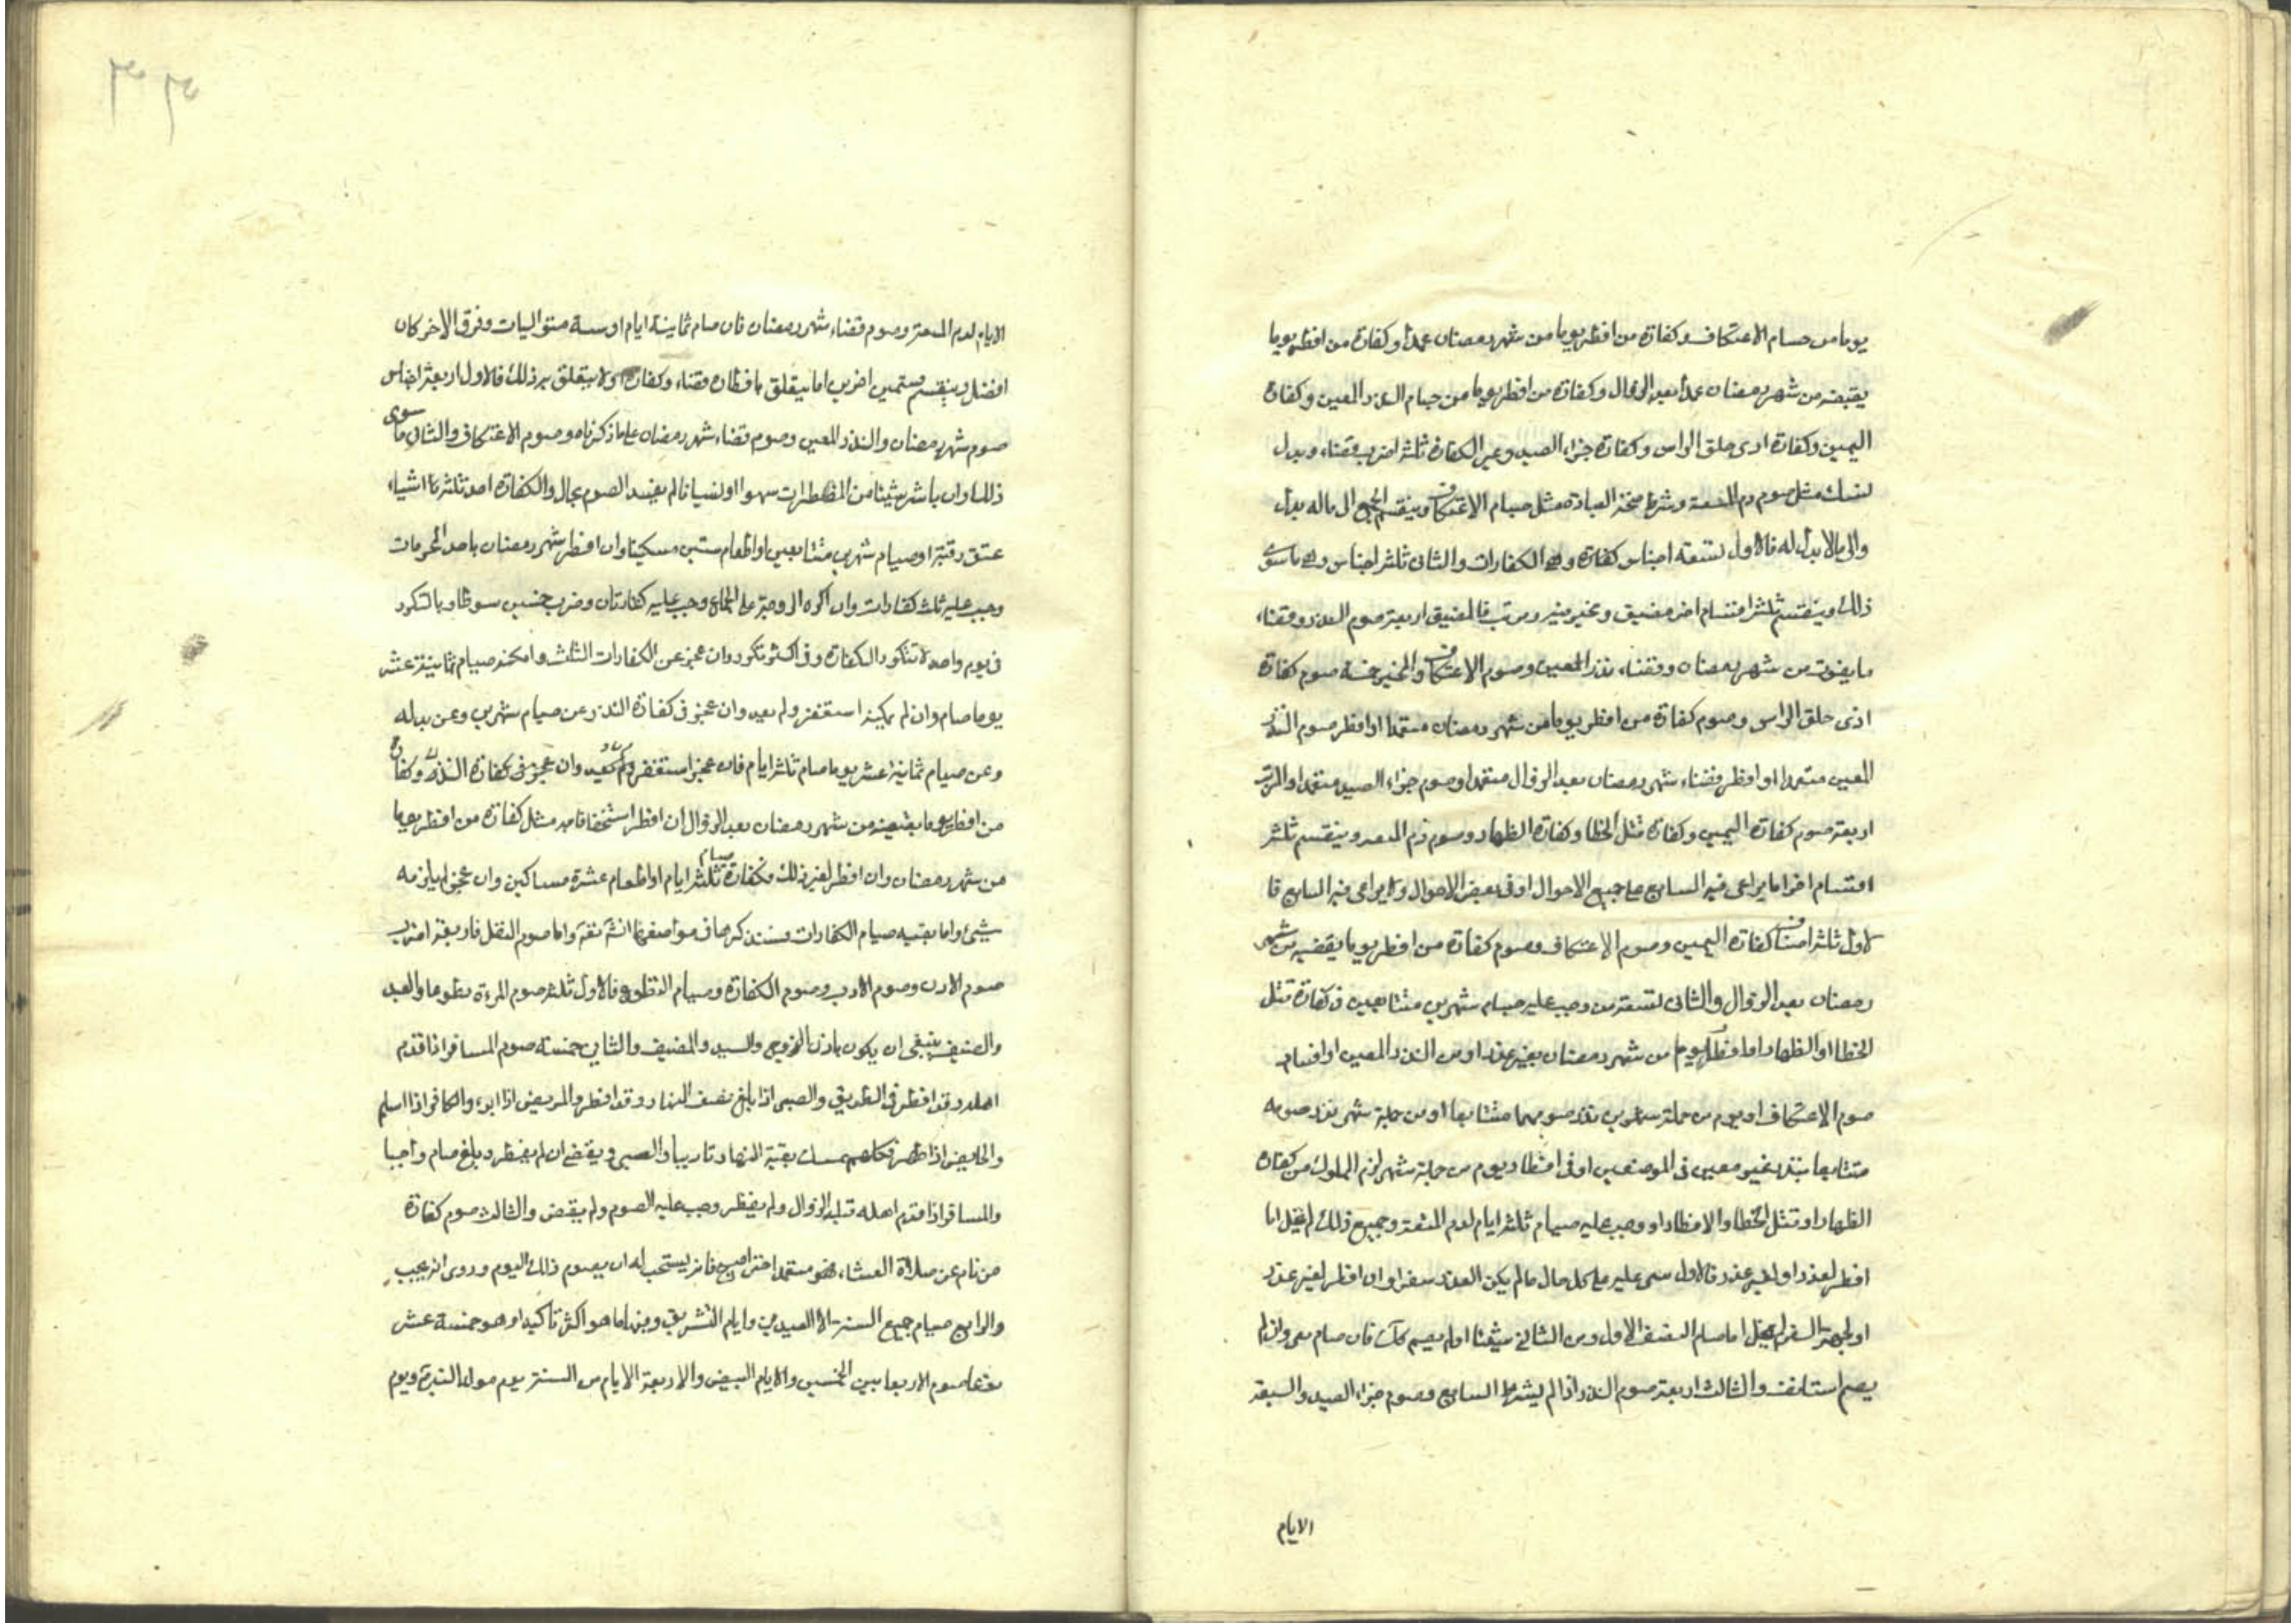 يوما من صيام الاعتكاف وكفارة من افطر يوما من شهر رمضان عمدا وكفارة من افطر يوما
يقضيه من شهر رمضان عمدا بعد الزوال وكفارة من افطر يوما من صيام النذر المعين وكفارة
اليمين وكفارة اذى حلق الراس وكفارة جزاء الصيد وغير الكفارة ثلثة اضرب قضاء وبدل
لنسك مثل صوم دم المتعة وشرط صحة العبادة مثل صيام الاعتكاف وينقسم الجميع الى ماله بدل
والى مالا بدل له فالاول تسعة اجناس كفارة وهى الكفارات والثانى ثلثة اجناس وهى ما سوى
ذلك وينقسم ثلثة اقسام اخر مضيق ومخير فيه ومرتب فالمضيق اربعة صوم النذر وقضاء
ما يفوت من شهر رمضان وقضاء نذر المعين وصوم الاعتكاف والمخير خمسة صوم كفارة
اذى حلق الراس وصوم كفارة من افطر يوما من شهر رمضان متعمدا او افطر صوم النذر
المعين متعمدا او افطر قضاء شهر رمضان بعد الزوال متعمدا وصوم جزاء الصيد متعمدا والمرتب
اربعة صوم كفارة اليمين وكفارة قتل الخطا وكفارة الظهار وصوم دم المتعة وينقسم ثلثة
اقسام اخر اما يراعى فيه التتابع على جميع الاحوال او فى بعض الاحوال ولا يراعى فيه التتابع فا
لاول ثلثة اصناف كفارة اليمين وصوم الاعتكاف وصوم كفارة من افطر يوما يقضيه من شهر
رمضان بعد الزوال والثانى تسعة من وجب عليه صيام شهرين متتابعين فى كفارة قتل
الخطا او الظهار او افطار يوم من شهر رمضان بغير عذر او من النذر المعين او افساد
صوم الاعتكاف او يوم من جملة شهرين نذر صومهما متتابعا او من جملة شهر نذر صومه
متتابعا بنذر غير معين فى الموضعين او فى افطار يوم من جملة شهر لزم المملوك من كفارة
الظهار او قتل الخطا والافطار او وجب عليه صيام ثلثة ايام لدم المتعة وجميع ذلك لم يخل اما
افطر لعذر او لغير عذر فالاول بنى عليه على كل حال مالم يكن العذر سفرا وان افطر لغير عذر
او لجهة السفر لم يخل اما صام النصف الاول ومن الثانى شيئا او لم يصم كك فان صام بنى وان لم
يصم استانف والثالث اربعة صوم النذر اذا لم يشرط التتابع وصوم جزاء الصيد والسبعة
الايام
الايام لدم المتعة وصوم قضاء شهر رمضان فان صام ثمانية ايام او ستة متواليات وفرق الاخر كان
افضل وينقسم قسمين اخرين اما يتعلق بافطاره قضاء وكفارة او لا يتعلق به ذلك فالاول اربعة اجناس
صوم شهر رمضان والنذر المعين وصوم قضاء شهر رمضان على ما ذكرناه وصوم الاعتكاف والثانى ما سوى
ذلك وان باشر شيئا من المفطرات سهوا او نسيانا لم يفسد الصوم بحال والكفارة احد ثلثة اشياء
عتق رقبة او صيام شهرين متتابعين او اطعام ستين مسكينا وان افطر شهر رمضان باحد المحرمات
وجب عليه ثلث كفارات وان اكره الزوجة على الجماع وجب عليه كفارتان وضرب خمسين سوطا وبالتكرر
فى يوم واحد لا تتكرر الكفارة وفى اكثر تكرر وان عجز عن الكفارات الثلث وامكنه صيام ثمانية عشر
يوما صام وان لم يمكنه استغفر ولم يعد وان عجز فى كفارة النذر عن صيام شهرين وعن بدله
وعن صيام ثمانية عشر يوما صام ثلثة ايام فان عجز استغفر ولم يعد وان عجز فى كفارة النذر وكفارة
من افطر يوما يقضيه من شهر رمضان بعد الزوال ان افطر استخفافا به مثل كفارة من افطر يوما
من شهر رمضان وان افطر لغير ذلك فكفارة صيام ثلثة ايام او اطعام عشرة مساكين وان عجز لم يلزمه
شيئ واما بقية صيام الكفارات فسنذكرها فى مواضعها انشآ الله واما صوم النفل فاربعة اضرب
صوم الاذن وصوم الادب وصوم الكفارة وصيام التطوع فالاول ثلثة صوم المرءة تطوعا والعبد
والضيف ينبغى ان يكون باذن الزوج والسيد والمضيف والثانى خمسة صوم المسافر اذا قدم
اهله وقد افطر فى الطريق والصبى اذا بلغ نصف النهار وقد افطر والمريض اذا ابرء والكافر اذا اسلم
والحايض اذا طهر فكلهم يمسك بقية النهار تاديبا والصبى ويقضى ان لم يفطر وبلغ صام واجبا
والمسافر اذا قدم اهله قبل الزوال ولم يفطر وجب عليه الصوم ولم يقض والثالث صوم كفارة
من نام عن صلاة العشاء فهو متعمد اخرا اصبح فانه يستحب له ان يصوم ذلك اليوم وروى انه يجب
والرابع صيام جميع السنة الا العيدين وايام التشريق ومنها ما هو اكثر تاكيدا وهو خمسة عشر
نوعا صوم الاربعا بين الخميسين والايام البيض والاربعة الايام من السنة يوم مولد النبى ويوم